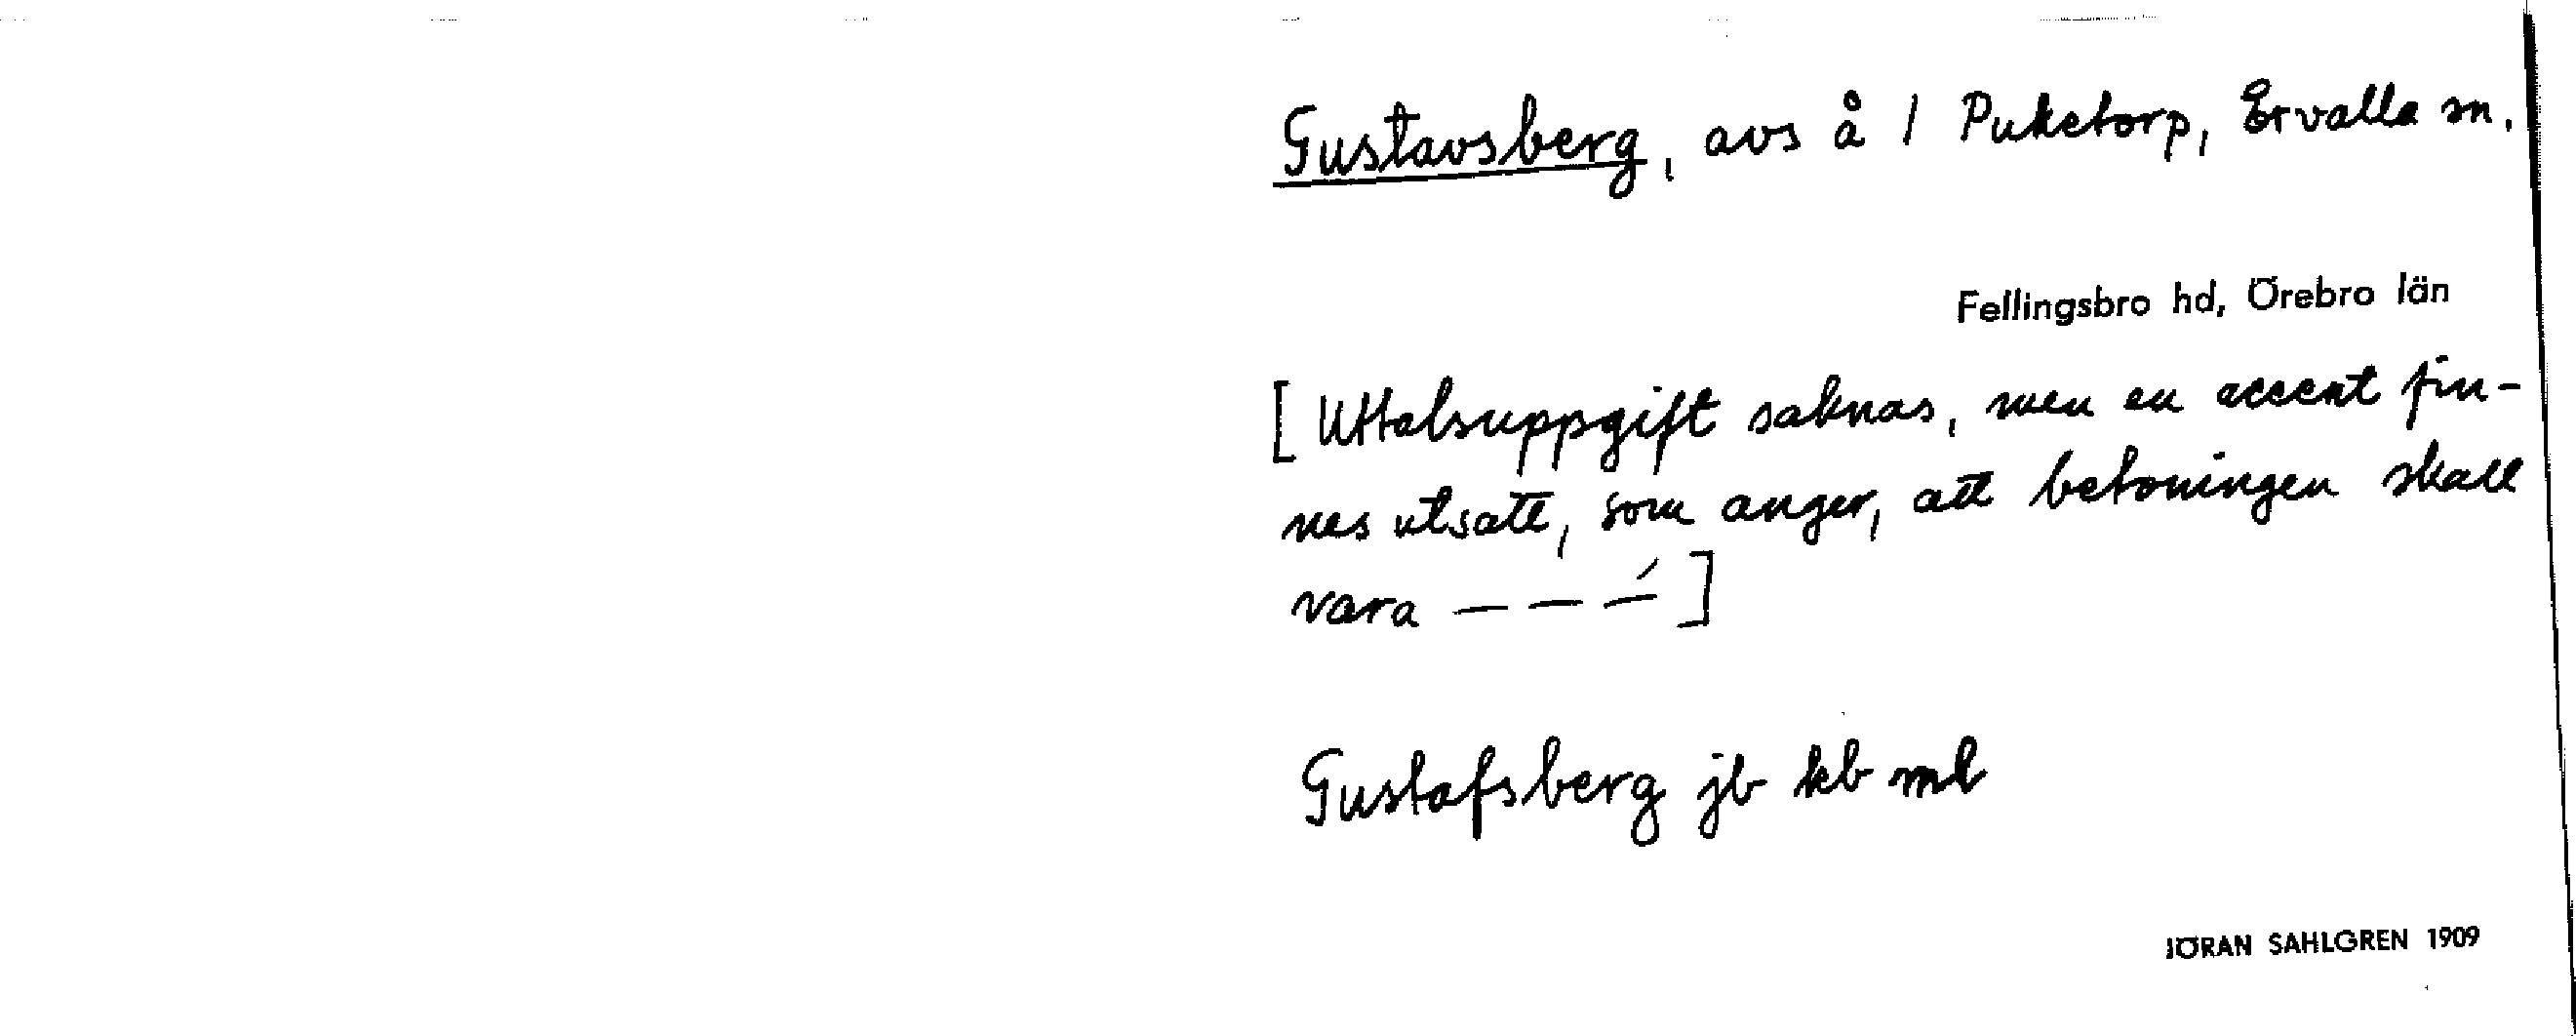 Gustavsberg, avs å 1 Puketorp, Ervalla sn.
Fellingsbro hd, Örebro län
[Uttalsuppgift saknas, men en accent fin-
nes utsatt, som anger, att betoningen skall
vara — — —́]
Gustafsberg jb kb ml
JÖRAN SAHLGREN 1909